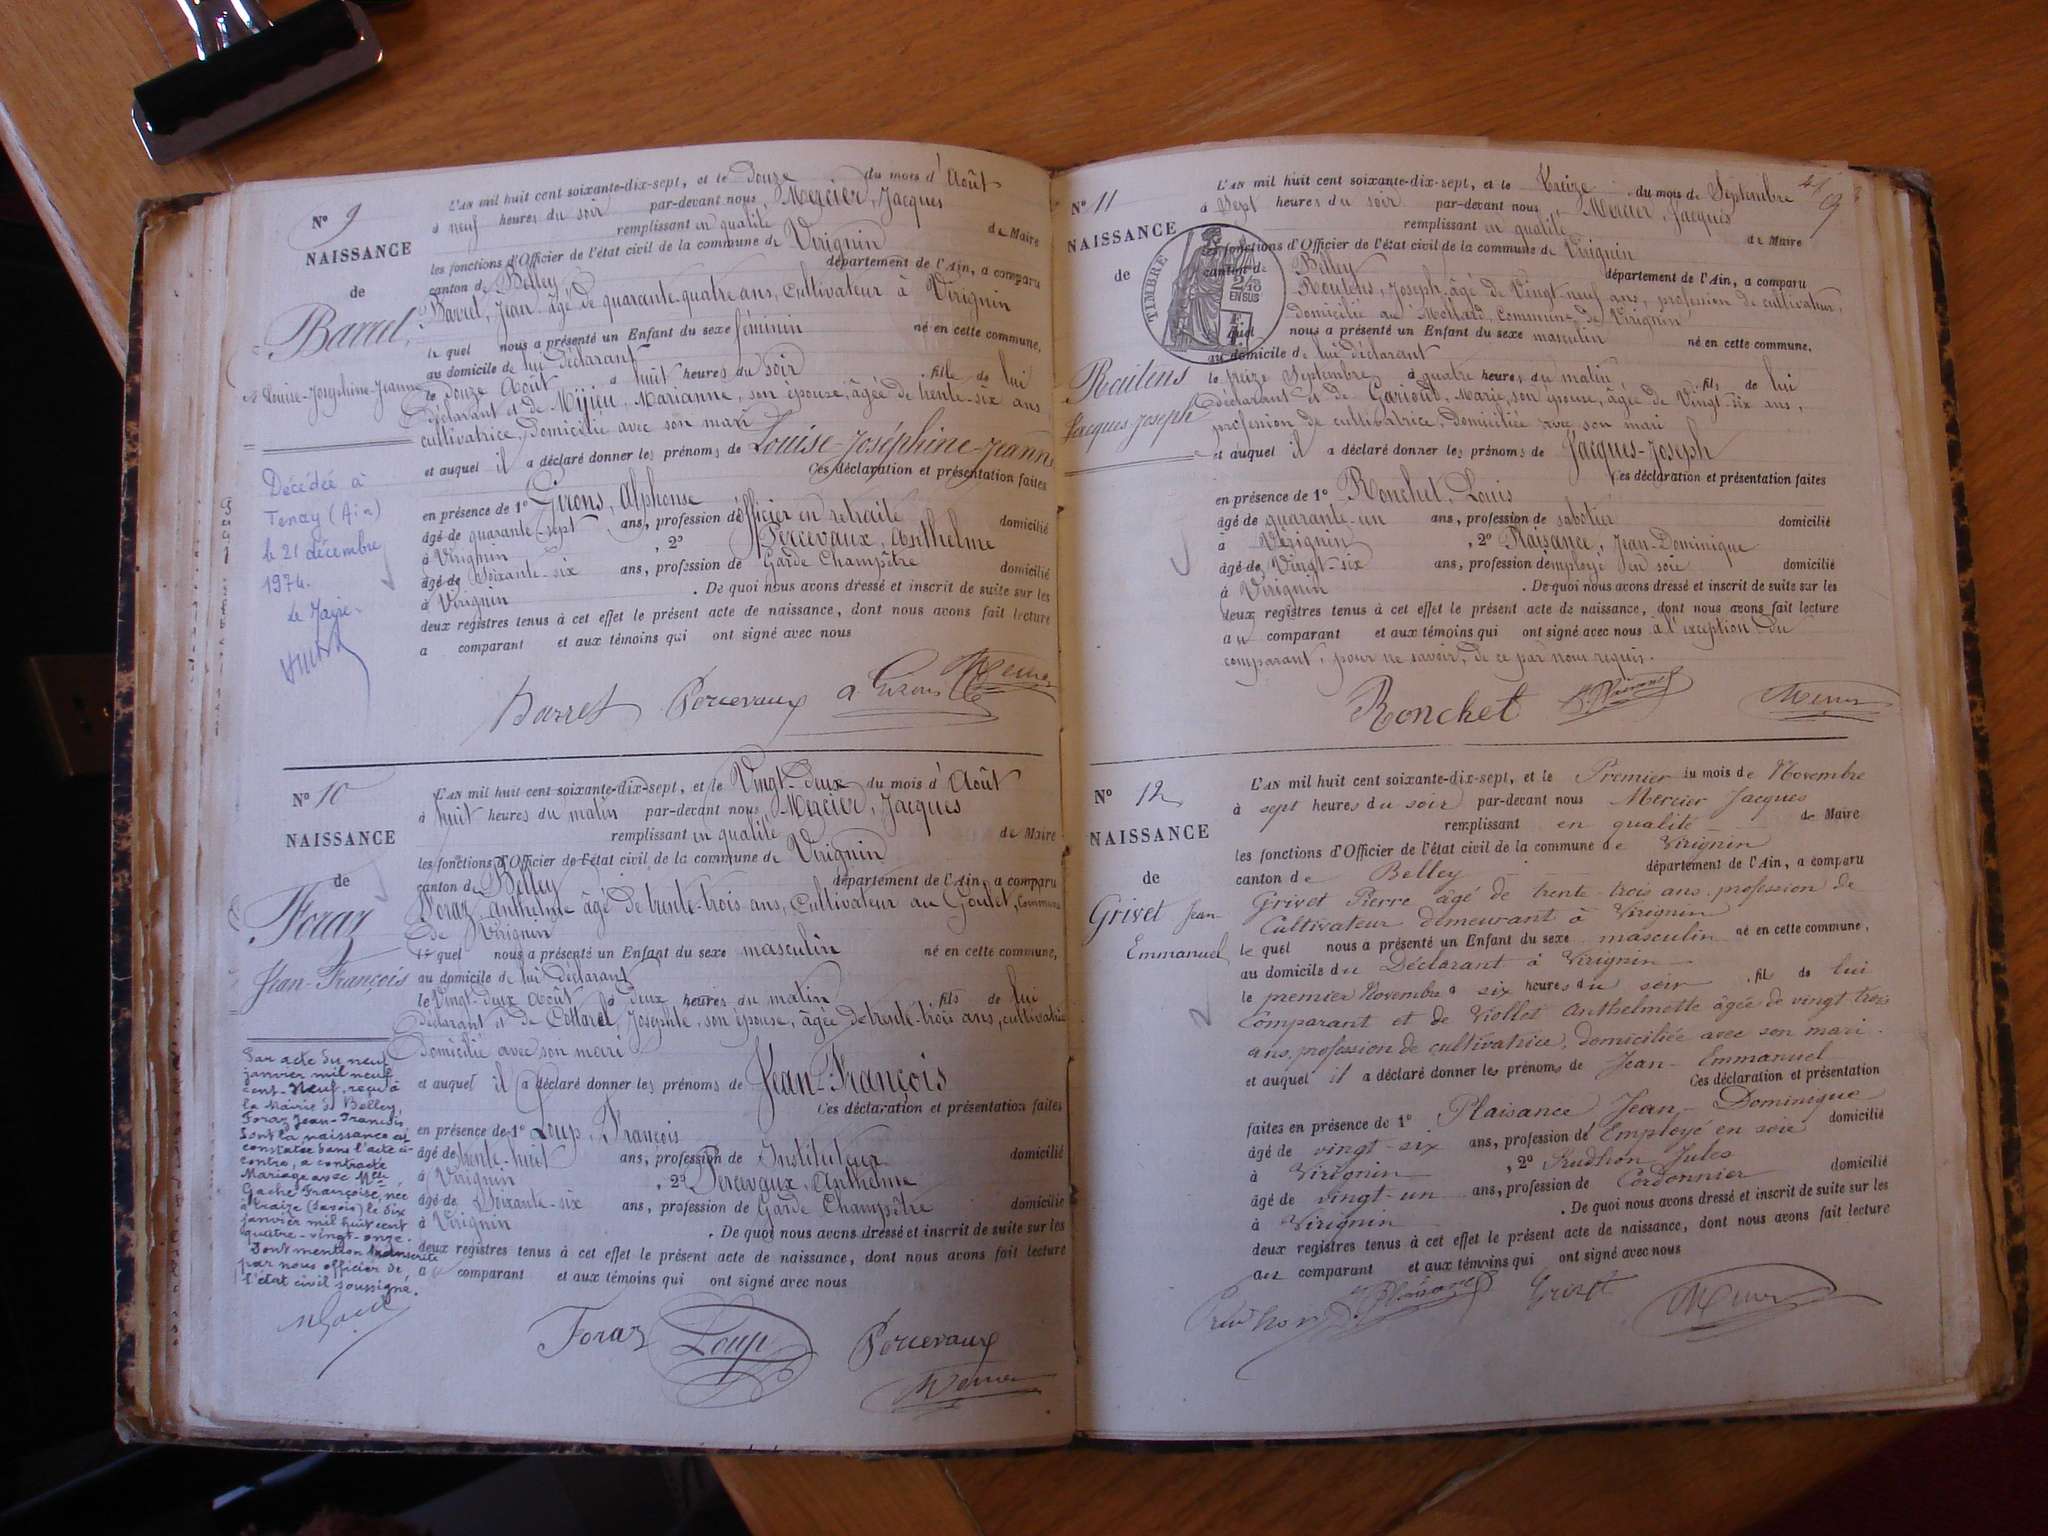 N° 9
NAISSANCE
de
Barret,
Louise-Joséphine-Jeanne
L'AN mil huit cent soixante-dix-sept, et le douze du mois d'Août
à neuf heures du soir par-devant nous, Mercier, Jacques
remplissant en qualité de Maire
les fonctions d'Officier de l'état civil de la commune de Virignin
canton de Belley, département de l'Ain, a comparu
Jean âgé de quarante-quatre ans, cultivateur à Virignin
le quel nous a présenté un Enfant du sexe féminin né en cette commune,
au domicile de lui déclarant
le douze Août à huit heures du soir fille de lui
déclarant et de Marianne, son épouse, âgée de trente-six ans
cultivatrice, domiciliée avec son mari
et auquel il a déclaré donner les prénoms de Louise-Joséphine-Jeanne
Ces déclaration et présentation faites
en présence de 1° Girons, Alphonse
âgé de quarante-sept ans, profession d'Officier en retraite domicilié
à Virignin, 2° Percevaux, Anthelme
âgé de Soixante-six ans, profession de Garde Champêtre domicilié
à Virignin. De quoi nous avons dressé et inscrit de suite sur les
deux registres tenus à cet effet le présent acte de naissance, dont nous avons fait lecture
a comparant et aux témoins qui ont signé avec nous
Barret Percevaux a Girons Mercier
Décédée à
Tenay (Ain)
le 21 décembre
1974.
Le Maire
N° 10
NAISSANCE
de
Foraz
Jean-François
L'AN mil huit cent soixante-dix-sept, et le Vingt-deux du mois d'Août
à huit heures du matin par-devant nous Mercier, Jacques
remplissant en qualité de Maire
les fonctions d'Officier de l'état civil de la commune de Virignin
canton de Belley département de l'Ain, a comparu
Foraz, anthelme âgé de trente-trois ans, cultivateur au Goulet, Commune
de Virignin
le quel nous a présenté un Enfant du sexe masculin né en cette commune,
au domicile de lui déclarant
le Vingt-deux Août à deux heures du matin fils de lui
déclarant et de Josephte, son épouse, âgée de trente-trois ans, cultivatrice
domicilié avec son mari
et auquel il a déclaré donner les prénoms de Jean-François
Ces déclaration et présentation faites
en présence de 1° Loup, François
âgé de trente-huit ans, profession de Instituteur domicilié
à Virignin, 2° Percevaux, Anthelme
âgé de Soixante-six ans, profession de Garde Champêtre domicilié
à Virignin. De quoi nous avons dressé et inscrit de suite sur les
deux registres tenus à cet effet le présent acte de naissance, dont nous avons fait lecture
au comparant et aux témoins qui ont signé avec nous
Foraz Loup Percevaux
Mercier
Par acte du neuf
janvier mil neuf
cent-Neuf, reçu à
la Mairie de Belley,
Foraz Jean-François
dont la naissance est
constatée dans l'acte ci-
contre, a contracté
Mariage avec Melle
Gache Françoise, née
à traize (Savoie) le six
janvier mil huit cent
quatre-vingt-onze.
Dont mention transcrite
par nous officier de
l'état civil soussigné.
N° 11
NAISSANCE
de
Raulens
Jacques-Joseph
TIMBRE
2/10
EN SUS
L'AN mil huit cent soixante-dix-sept, et le treize du mois de Septembre
à Sept heures du soir par-devant nous, Mercier, Jacques
remplissant en qualité de Maire
les fonctions d'Officier de l'état civil de la commune de Virignin
canton de Belley département de l'Ain, a comparu
Roulens, Joseph âgé de Vingt-neuf ans, profession de cultivateur,
domicilié au Mollard, commune de Virignin
quel nous a présenté un Enfant du sexe masculin né en cette commune,
au domicile de lui déclarant
le treize Septembre à quatre heures du matin, fils de lui
déclarant et de Marie, son épouse, âgée de Vingt-six ans,
profession de cultivatrice, domiciliée avec son mari
et auquel il a déclaré donner les prénoms de Jacques-Joseph
Ces déclaration et présentation faites
en présence de 1° Ronchet, Louis
âgé de quarante-un ans, profession de sabotier domicilié
à Virignin, 2° Plaisance, Jean-Dominique
âgé de Vingt-six ans, profession d'employé en soie domicilié
à Virignin. De quoi nous avons dressé et inscrit de suite sur les
deux registres tenus à cet effet le présent acte de naissance, dont nous avons fait lecture
au comparant et aux témoins qui ont signé avec nous à l'exception du
comparant, pour ne savoir, de ce par nous requis.
Ronchet Plaisance Mercier
N° 12
NAISSANCE
de
Grivet Jean
Emmanuel
L'AN mil huit cent soixante-dix-sept, et le Premier du mois de Novembre
à sept heures du soir par-devant nous Mercier Jacques
remplissant en qualité de Maire
les fonctions d'Officier de l'état civil de la commune de Virignin
canton de Belley département de l'Ain, a comparu
Grivet Pierre âgé de trente-trois ans profession de
Cultivateur demeurant à Virignin
le quel nous a présenté un Enfant du sexe masculin né en cette commune,
au domicile du Déclarant à Virignin
le premier Novembre à six heures du soir, fil de lui
Comparant et de Viollet Anthelmette âgée de vingt-trois
ans, profession de cultivatrice, domiciliée avec son mari.
et auquel il a déclaré donner les prénoms de Jean-Emmanuel
Ces déclaration et présentation
faites en présence de 1° Plaisance Jean Dominique
âgé de vingt-six ans, profession d'Employé en soie domicilié
à Virignin, 2° Prudhon Jules
âgé de vingt-un ans, profession de Cordonnier domicilié
à Virignin. De quoi nous avons dressé et inscrit de suite sur les
deux registres tenus à cet effet le présent acte de naissance, dont nous avons fait lecture
au comparant et aux témoins qui ont signé avec nous
Prudhon Plaisance Grivet Mercier